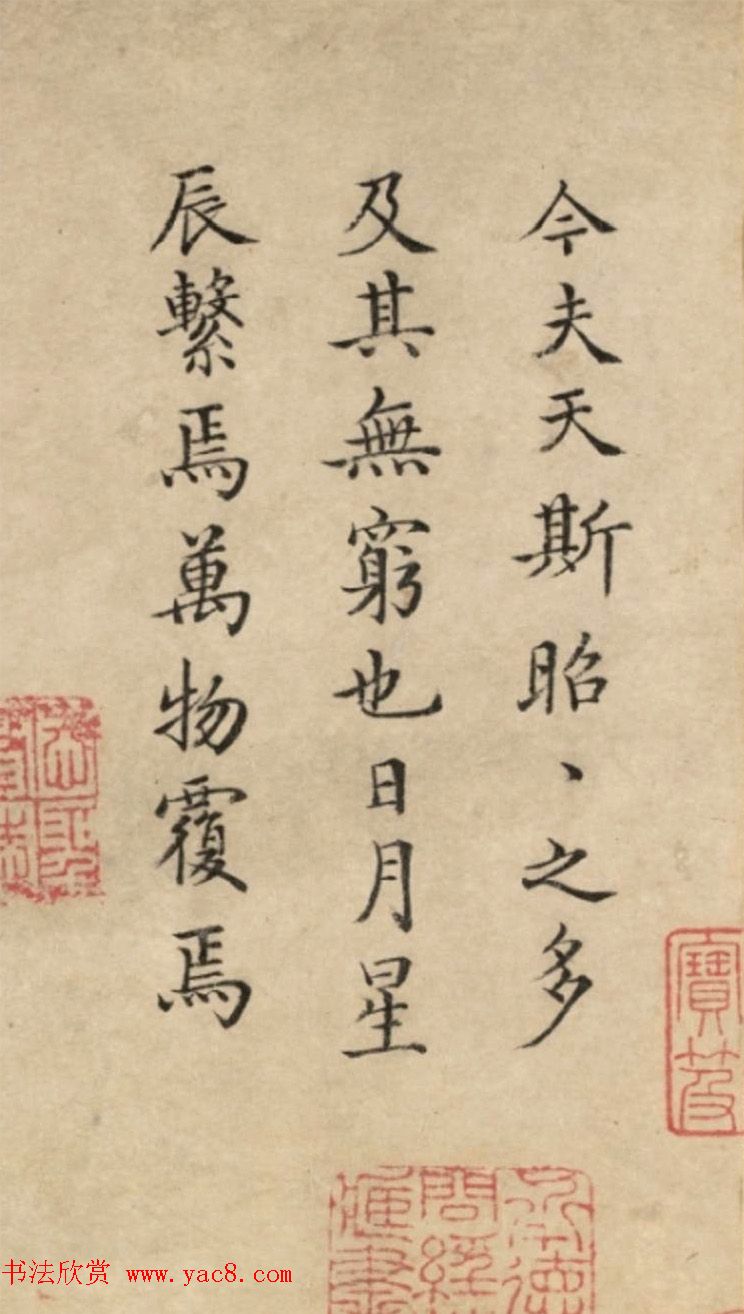 今夫天斯昭、之多
及其無窮也日月星
辰繫焉萬物覆焉
寶笈
书法欣赏 www.yac8.com